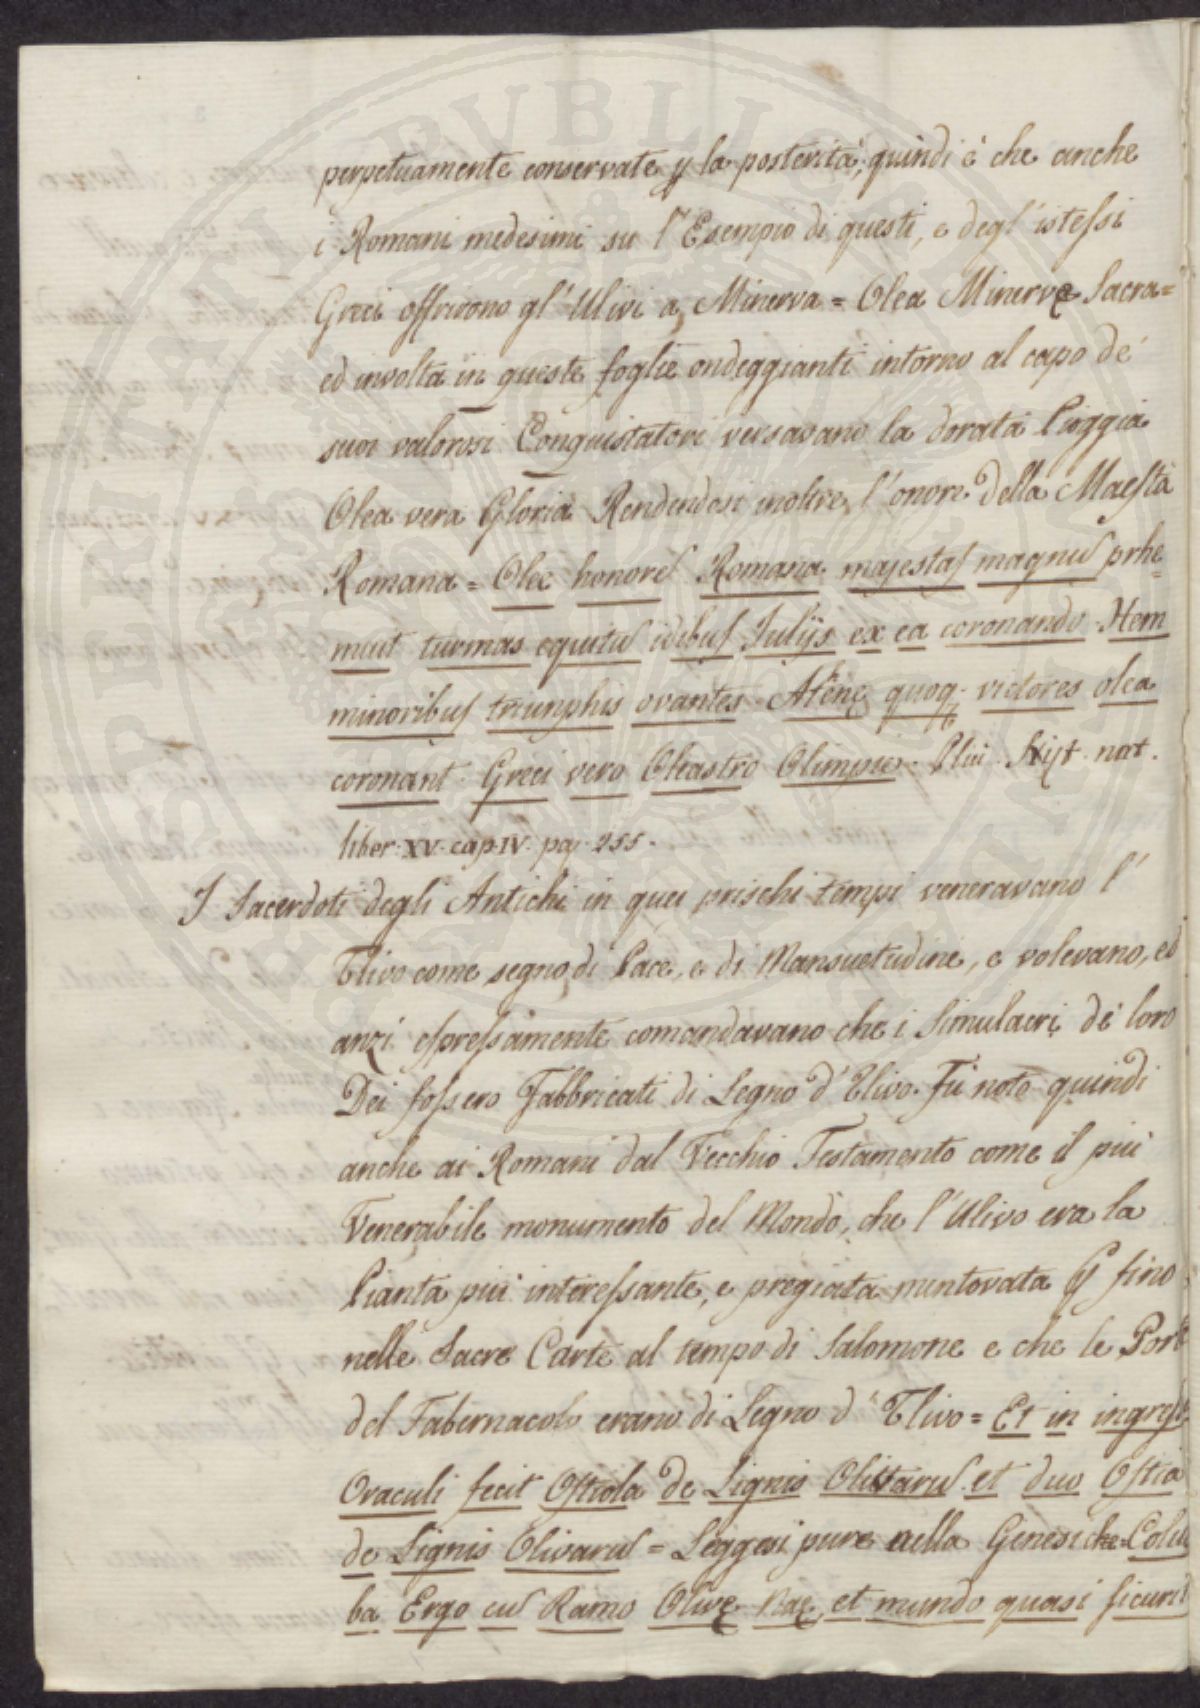 perpetuamente conservate p la posterità, quindi è che anche
i Romani medesimi su l'Esempio di questi, e degl'istessi
Greci offrirono gl'Ulivi a Minerva = Olea Minervę Sacra =
ed involta in queste foglie ondeggianti intorno al capo de'
suoi valorosi Conquistatori versavano la dorata Pioggia
Olea vera Gloria Rendendosi inoltre l'onore della Maestà
Romana = Olee honores Romana majestas magnū prhe=
muit turmas equitū idibus Julijs ex ea coronando. Item
minoribus triunphis ovantes. Atenę quoq. victores olea
coronant. Greci vero Oleastro Olimpie. Plin. Hist. nat.
liber. XV. cap. IV. pag. 255.
I Sacerdoti degli Antichi in quei prischi tempi veneravano l'
Ulivo come segno di Pace, e di Mansuetudine, e volevano, ed
anzi espressamente comandavano che i Simulacri de loro
Dei fossero Fabbricati di Legno d'Ulivo. Fù noto quindi
anche ai Romani dal Vecchio Testamento come il più
Venerabile monumento del Mondo, che l'Ulivo era la
Pianta più interessante, e pregiata mentovata p fino
nelle Sacre Carte al tempo di Salomone e che le Porte
del Tabernacolo erano di Legno d'Ulivo = Et in ingressu
Oraculi fecit Ostiola de Lignis Olivarū et duo Ostia
de Lignis Olivarū = Leggesi pure nella Genesi che Colū
ba Ergo cū Ramo Olivę Naę, et mundo quasi
PROSPERITATI PUBLICAE